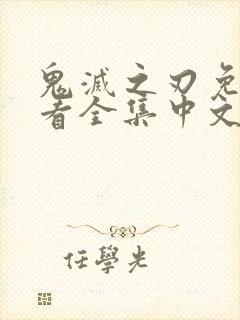 鬼滅之刃免
者全集中文
任學光